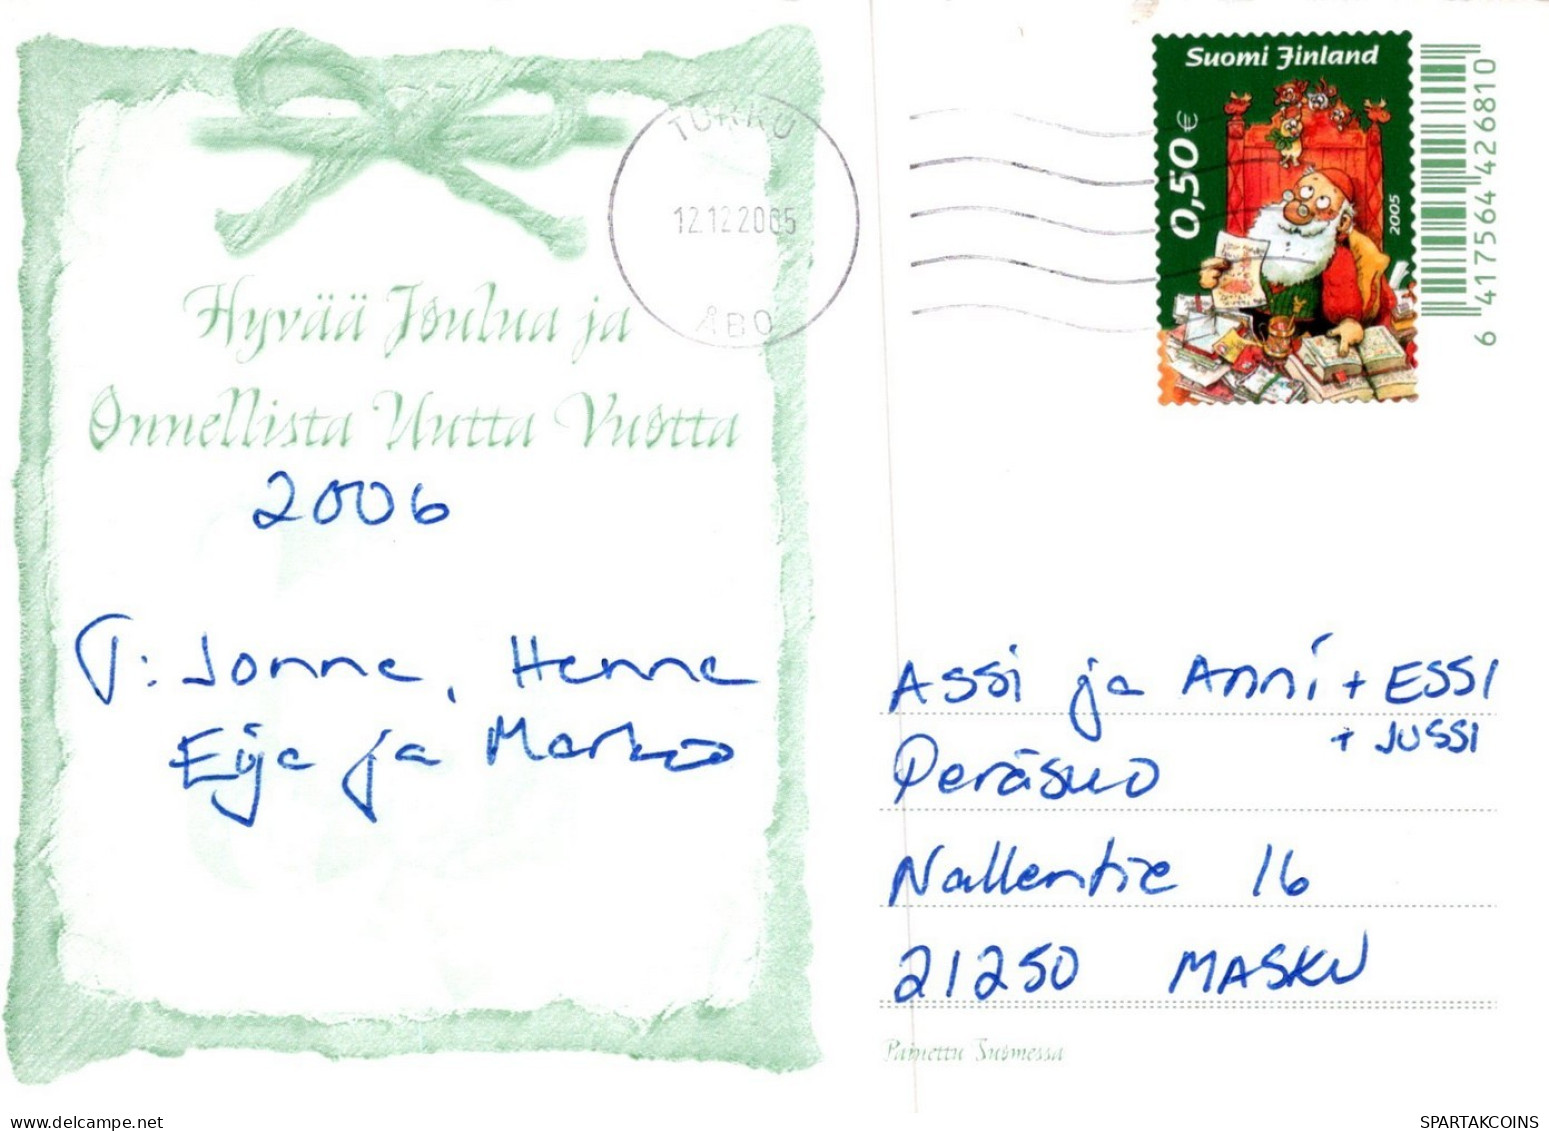 Suomi Finland
0,50 €
2005
6 417564 426810
TURKU
12.12.2005
ÅBO
Hyvää Joulua ja
Onnellista Uutta Vuotta
2006
T: Jonne, Henne
Eija ja Marko
Assi ja Anni + ESSI
+ JUSSI
Peräsuo
Nallentie 16
21250 MASKU
Painettu Suomessa
SPARTAKCOINS